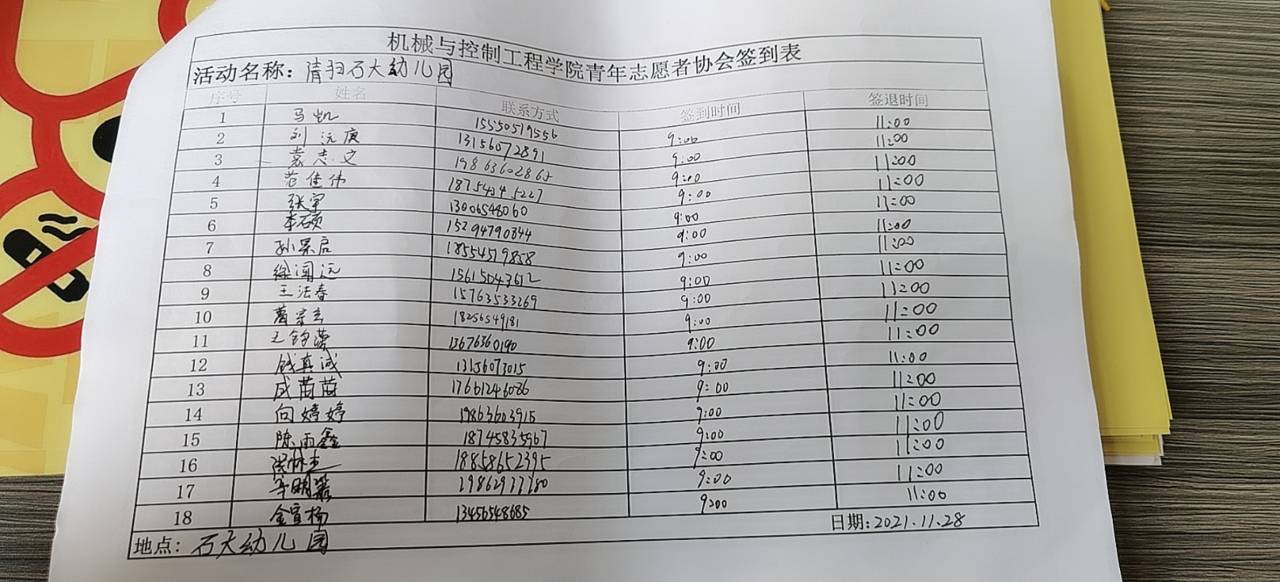 机械与控制工程学院青年志愿者协会签到表
活动名称：清扫石大幼儿园
序号 姓名 联系方式 签到时间 签退时间
1 马凯 15550519556 9:00 11:00
2 刘沅庚 13156072891 9:00 11:00
3 袁志文 19863602865 9:00 11:00
4 范佳伟 9:00 11:00
5 张军 13006548060 9:00 11:00
6 李硕 15294790844 9:00 11:00
7 18554579858 9:00 11:00
8 徐闻远 15615043612 9:00 11:00
9 王法春 15763533269 9:00 11:00
10 18256549181 9:00 11:00
11 9:00 11:00
12 钱真诚 13156073015 9:00 11:00
13 成苗苗 17661246086 9:00 11:00
14 向婷婷 19863603915 9:00 11:00
15 陈雨鑫 18745835967 9:00 11:00
16 18858652395 9:00 11:00
17 9:00 11:00
18 金宣杨 13456548685 9:00 11:00
地点：石大幼儿园 日期：2021.11.28